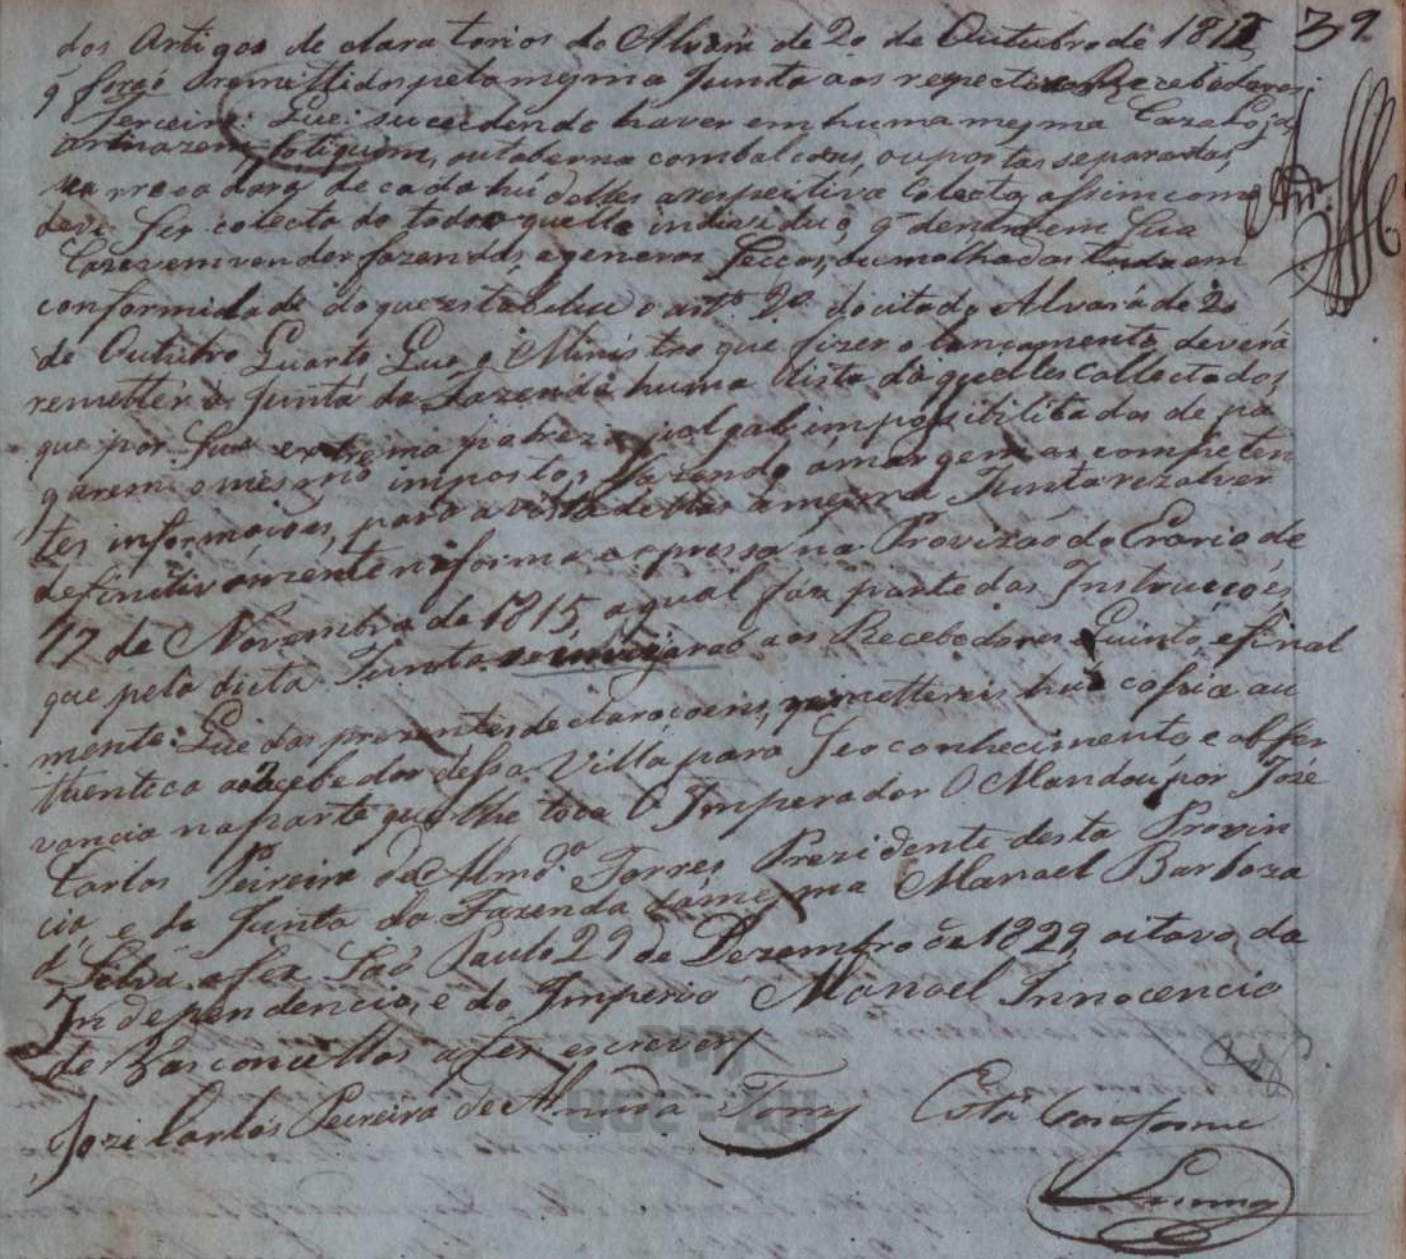 dos Artigos declaratorios do Alvará de 20 de Outubro de 1812 39
q̃ forão remettidos pela mesma Junta aos respectivos Recebedores:
Terceiro: Que: sucedendo haver em huma mesma Caza Loja,
Armazem, botiquim, ou taberna com balcoens, ou portas separadas,
se arrecadará de cada hũ delles a respeitiva Colecta assim como
deve Ser colectado todo aquelle individuo, q̃ dentro em Sua
Caza vender fazendas, e generos Seccos, ou molhados tudo em
conformidade do que estabeleceu o art.º 2º do citado Alvará de 20
de Outubro Quarto: Que o Ministro que fizer o lançamento deverá
remetter á Junta da Fazenda huma Lista daquelles Collectados
que por Sua extrema pobreza julgar impossibilitados de pa
garem o mesmo imposto, fazendo á margem as competen
tes informaçoes, para a vista dellas a mesma Junta rezolver
definitivamente na forma expressa na Provizão do Erario de
17 de Novembro de 1815, a qual fáz parte das Instrucçoẽs
que pela dicta Junta se inviarão aos Recebedores Quinto e final
mente: Que das prezentes declaraçoens, remettereis huã copia au
thentica ao Recebedor dessa Villa para Seo conhecimento, e obser
vancia na parte que lhe toca O Imperador O Mandou por José
Carlos Pereira de Almdª Torres Prezidente desta Provin
cia, e da Junta da Fazenda da mesma Manoel Barboza
dª Silva a fez São Paulo 29 de Dezembro de 1829, oitavo da
Independencia, e do Imperio Manoel Innocencio
de Vasconcellos a fez escrever/
Joze Carlos Pereira de Almeida Torres Está Conforme